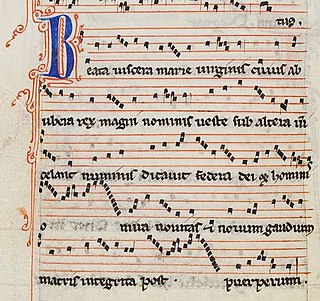 tus.
Beata uiscera marie uirginis cuius ad
ubera rex magni nominis ueste sub altera uim
celans numinis dictauit federa dei & homini
o mira nouitas & nouum gaudium
matris integrita post. puerperium.